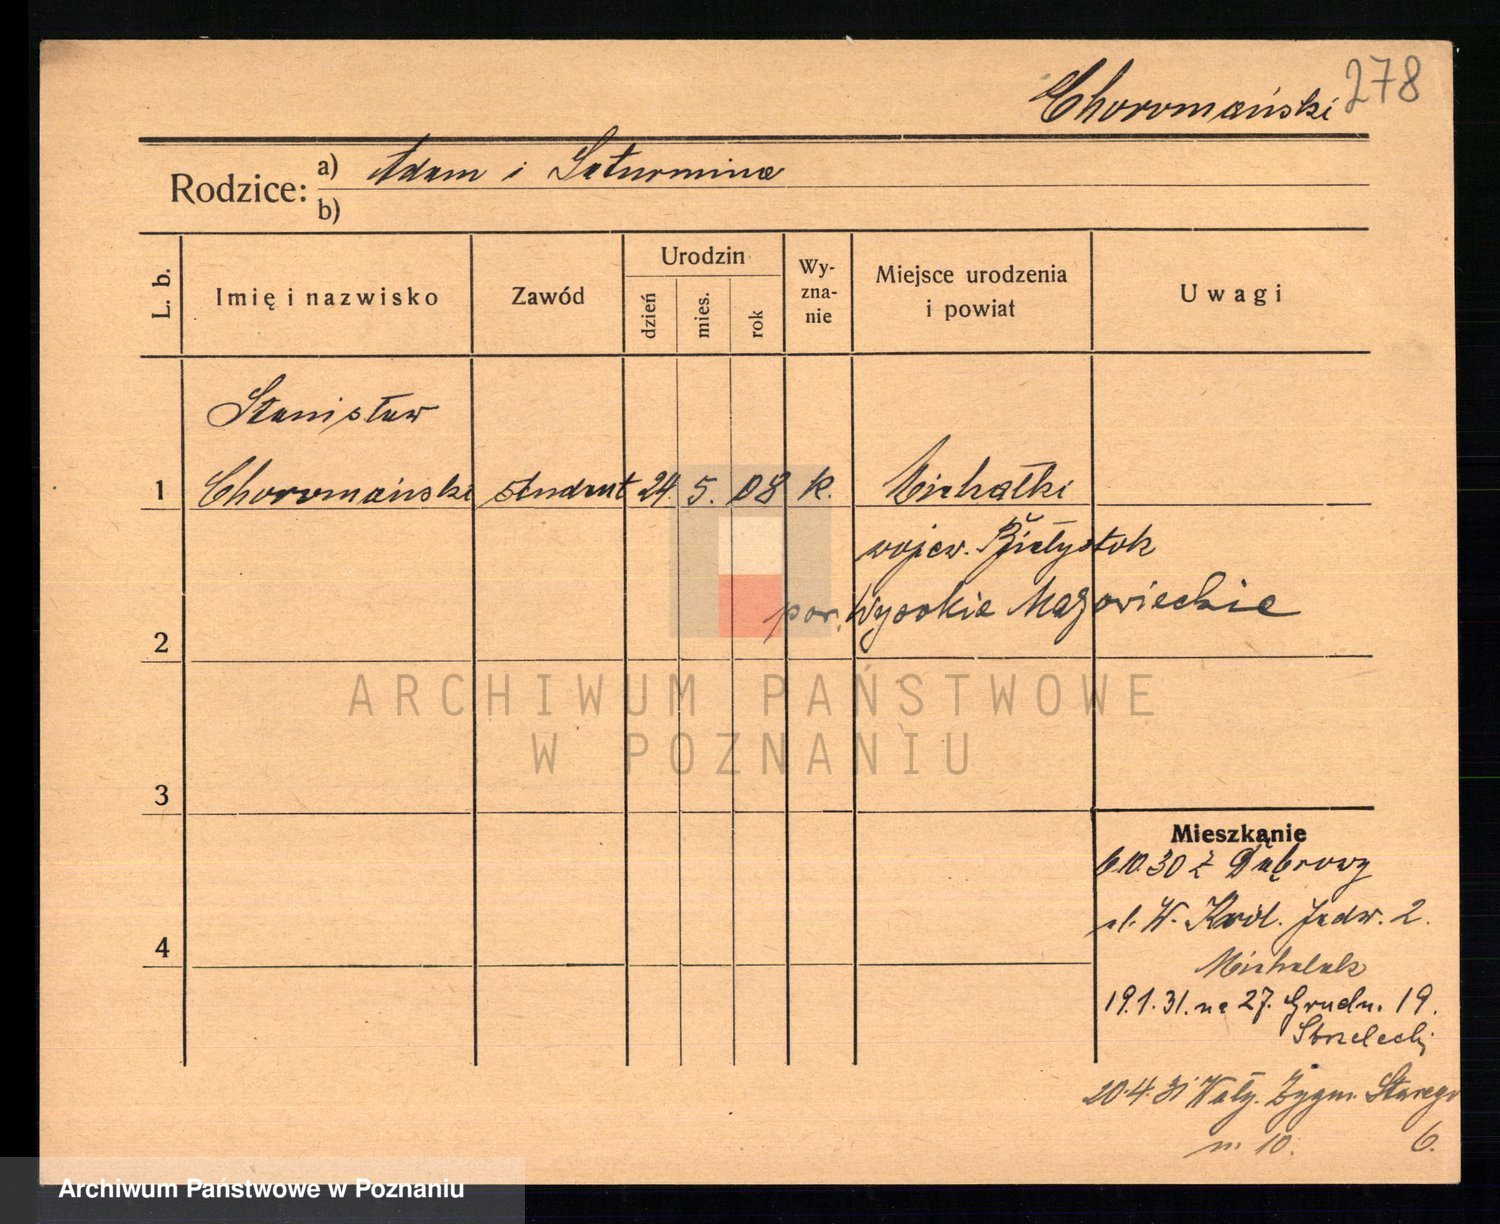 Choromański 278
Rodzice: a) Adam i Saturnina
b)
L. b.
Imię i nazwisko
Zawód
Urodzin
dzień
mies.
rok
Wy-
zna-
nie
Miejsce urodzenia
i powiat
Uwagi
Stanisław
1 Choromański student 24. 5. 08 k. Michałki
wojew. Białystok
pow. Wysokie Mazowieckie
2
ARCHIWUM PAŃSTWOWE
W POZNANIU
3
Mieszkanie
6.10.30 z Dąbrowy
ul. W. Król. Jadw. 2.
4
Michalak
19.1.31. na 27. Grudn. 19.
Strzelecki
20.4.31 Wały. Zygm. Starego
m. 10. 6.
Archiwum Państwowe w Poznaniu